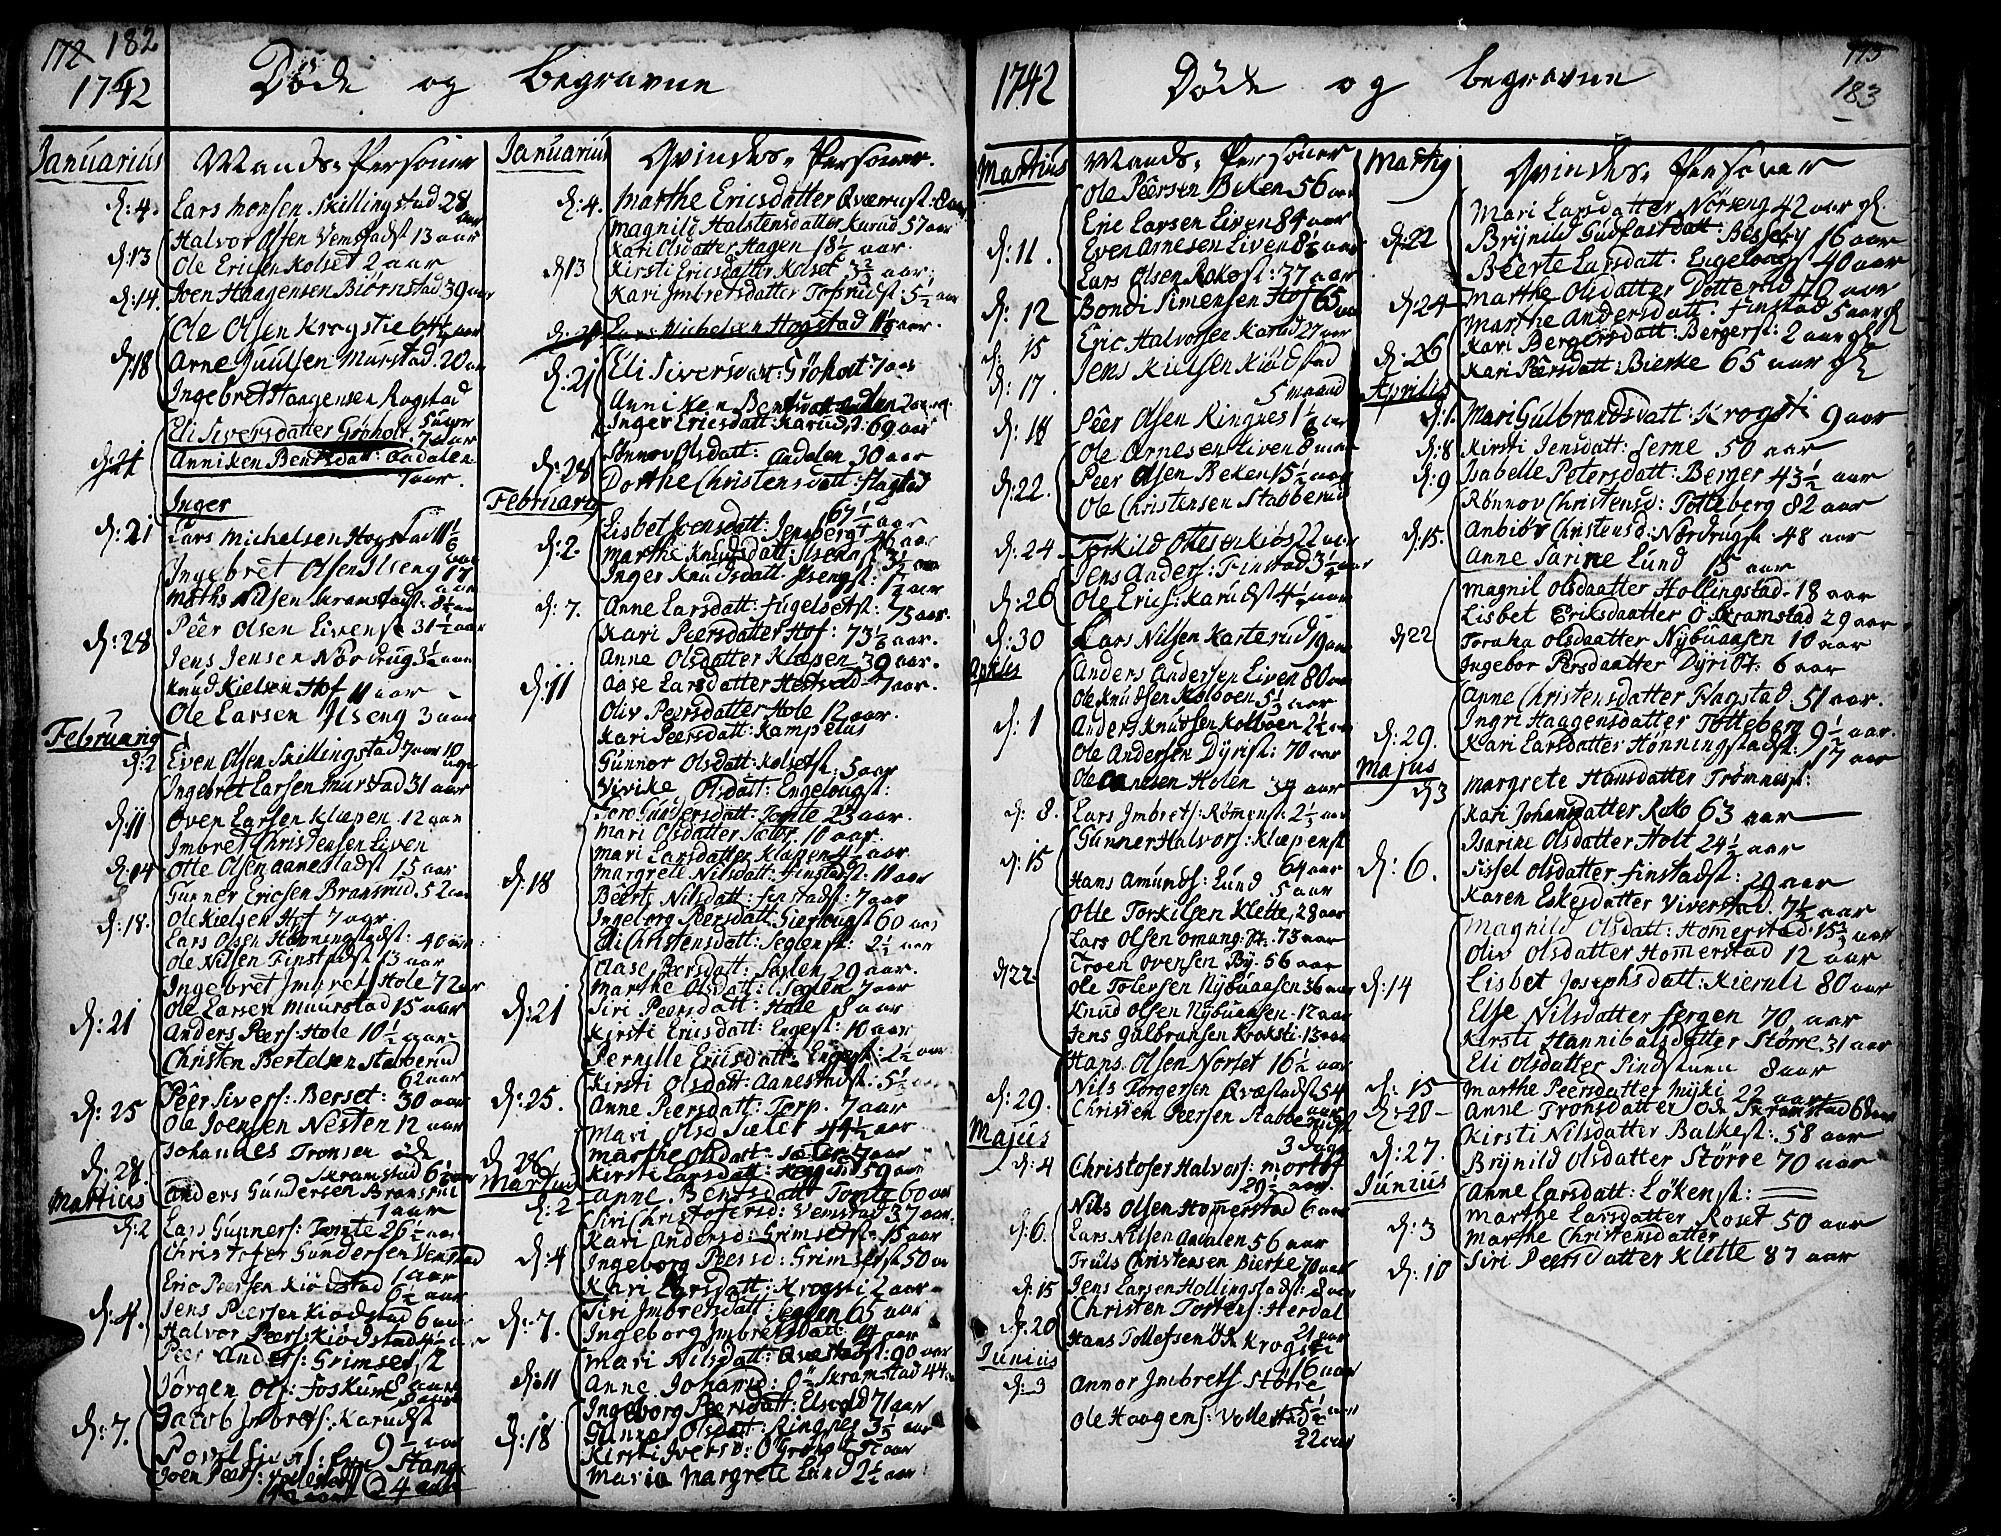 172 182
1742
Døde og begravne
Januarius
Mands-Personer
d: 4. Lars Monsen Skillingstad 28 aar
Halvor Olsen Vemstadst 13 aar
d: 13 Ole Ericsen Kolset 2 aar
d: 14. Iven Haagensen Biørnstad 39 aar
Ole Olsen Krogstie 64½ aar
d: 18 Arne Juulsen Murstad. 20 aar
Ingebret Haagensen Rogstad
5 uger
Eli Siversdatter Grøholt. 7 aar
d: 21 Anniken Bentsdatt: Aadalen
7 aar.
Inger
d: 21 Lars Michelsen Hogstad
Ingebret Olsen Ilseng 17 aar
Maths Nilsen Skramstadst. 8½ aar
Peer Olsen Livenst 31½ aar
d: 28 Jens Jensen Nordrug 3½ aar
Knud Kielsen Hof 11 aar
Ole Larsen Ilseng 3 aar
Februarij
d: 2 Even Olsen Skillingstad 7 aar 10 uger
Ingebret Larsen Murstad 31 aar
d: 11 Oven Larsen Klæpen. 12 aar
Imbret Christensen Liven
d: 14 Otte Olsen Aanestadst 15 aar
Gunner Ericsen Bransrud. 52 aar
d: 18. Ole Kielsen Hof 7 aar.
Lars Olsen Hønningstadst: 40 aar:
Ole Nilsen Finstadst 13 aar
Ingebret Imbrets Hole 72 aar
d: 21 Ole Larsen Muurstad 15 aar
Anders Peers: Hole 10½ aar
Christen Bertelsen Stabberud
62 aar
d: 25 Peer Sivers: Berset: 30 aar
Ole Joensen Nesten 12 aar
d: 28. Johannes Tronsen Øde
Skramstad 6½ aar
Martius
Anders Gundersen Bransrud
1 aar
d: 2 Lars Gunners: Tomte 26½ aar
Christofer Gundersen Vemstad
1 aar
Eric Peersen Kiødstad
6½ aar
d: 4. Jens Peersen Kiødstad 6 aar
Halvor Peers: Kiødstad
Peer Anders: Grimset 2
Jørgen Ols: Foskum 8 aar
d: 7. Jacob Imbrets: Karudst
9½ aar
Povel Sivers: Stange
Joen Peers: 24 aar
Januarius
Qvindes-Personer.
d: 4. Marthe Ericsdatter Qværnst: 8 aar
Magnild Halstensdatter Kurud 57 aar
Kari Olsdatter Hagen 18½ aar.
d: 13 Kirsti Ericsdatter Kolset 3½ aar:
Kari Imbretsdatter Tofsrudst: 5½ aar
d: 21 Lars Michelsen Hogstad 11 aar.
d: 21 Eli Siversdatt: Grøholt 7 aar
Anniken Bentsdatt
Inger Ericsdatt: Karudst. 69 aar
d: 28 Rønnov Olsdatt: Aadalen 30 aar
Dorthe Christensdatt: Flagstad
67½ aar
Februarij
Lisbet Joensdatt: Jensberg
d: 2. Marthe Knudsdatt: Ilsengst 26 aar
Inger Knudsdatt. Ilsengst: 1½ aar
d: 7. Anne Larsdatt: Fugelsetst: 75 aar.
Kari Peersdatter Hof: 73½ aar.
Anne Olsdatter Klæpen 39 aar.
d: 11 Aase Larsdatter Hestvad 7 aar.
Oliv Peersdatter Hole 12 aar.
Kari Peersdatt: Kampetus
Gunnor Olsdatt: Kolsetst: 5 aar
Vivike Olsdatt: Engelougst:
Tore Gundersdatt: Tomte 23 aar.
Mari Olsdatter Sæter. 10 aar:
Mari Larsdatter Klæpen 4½ aar.
d: 18 Margrete Nilsdatt: Finstadst: 11 aar
Berte Nilsdatt: Finstadst: 7 aar
Ingeborg Peersdatt: Gierlougst 60 aar
Eli Christensdatt: Seglenst: 2½ aar
Aase Peersdatt: Seglen 29 aar.
Marthe Olsdatt: Seglen 7 aar
d: 21 Siri Peersdatt: Hole 8 aar
Kirsti Ericsdatt: Engest: 10 aar
Pernille Ericsdatt: Engest: 2½ aar
Kirsti Olsdatt: Aanestadst. 5½ aar
d: 25. Anne Peersdatt: Torp. 7 aar
Mari Olsd Sæter 44½ aar
d: 28 Marthe Olsdatt: Sæter 7 aar
Kirsti Larsdatt: Haagen 59 aar
Martius
Anne Bentsdatt Tomte 60 aar
d: 2 Siri Christofersd: Vemstad 37 aar.
Kari Andersd: Grimsetst: 15 aar
d: 4 Ingeborg Peersd: Grimsetst 50 aar
Kari Larsdatt: Krogsti 2 aar
d: 7. Siri Imbretsdatt: Seglen 65 aar
Ingeborg Imbretsdatt 14 aar
Mari Nilsdatt: Qvæstadst: 90 aar
d: 11 Anne Johansd: Ø Skramstad 44 aar
Ingeborg Peersdatt: Elsvold 71 aar
d: 18 Gunnor Olsdatt: Ringnes 3½ aar
Kirsti Iversd: Ø Grøholt 52 aar
Maria Margrete Lund 2½ aar
173
183
1742
Døde og begravne
Martius
Mands-Personer
Ole Peersen Beken 56 aar
Eric Larsen Liven 84 aar
d: 11. Even Arnesen Liven 8½ aar
Lars Olsen Rokost: 37 aar
d: 12 Bondi Simensen Hof 65 aar
d: 15 Eric Halvorsen Karud 27 aar
d: 17. Jens Kielsen Kiødstad
5 maand
d: 18 Peer Olsen Ringnes 1½ aar
Ole Arnesen Liven 8 maan
d: 22. Peer Olsen Beken 15½ aar
Ole Christensen Stabberud
d: 24. Torkild Ottesen Kiøs 22 aar
Jens Anders: Finstad 3½ aar
d: 26 Ole Erics: Karudst 4½ aar
d: 30 Lars Nilsen Karterud 19 aar
Aprilis
Anders Andersen Liven 80 aar
Ole Knudsen Kolboen 5½ aar
d: 1 Anders Knudsen Kolboen 2½ aar
Ole Andersen Dyrist: 70 aar
Ole Arnesen Holen 39 aar
d: 8. Lars Imbrets: Rømenst: 2½ aar
Gunner Halvors: Klæpenst
64 aar
d: 15 Hans Amunds: Lund 5 aar
Otte Torkilsen Klette, 28 aar
Lars Olsen Omang: St. 75 aar
Troen Ovensen By. 56 aar
d: 22. Ole Tolersen Nybuaasen 36 aar
Knud Olsen Nybuaasen. 12 aar
Jens Gulbransen Kroksti. 13 aar
Hans Olsen Norset 16½ aar
Nils Torgersen Qvæstadst 54
d: 29. Christen Peersen Stabberudst
3 dage
Majus
d: 4 Christofer Halvors: Mortof
29½ aar.
Nils Olsen Homerstad 6 aar
d: 6. Lars Nilsen Aadalen 56 aar
Truls Christensen Bierke 70 aar
d: 15 Jens Larsen Hollingstadst: 8 aar
Christen Tostens: Herdal
21 aar
d: 20 Hans Tollefsen Ø K Krogsti
16 aar
Junius
d: 3 Annor Imbrets Større
5½ aar
Ole Haagens: Vollestad
22 aar
Martij
Qvindes-Personer
Mari Larsdatter Nørseng 42 aar gl.
d: 22 Brynild Gudfastdatt. Bessebÿ 16 aar
Beerte Larsdatt. Engelougst 40 aar
Marthe Olsdatter Dotterud 70 aar
d: 24 Marthe Andersdatt. Finstad 5 aar gl
Kari Bergersdatt. Bergerst: 2 aar gl
d: 26 Kari Peersdatt: Bierke 65 aar gl
Aprilis
d: 1. Mari Gulbrandsdatt: Krogsti 9 aar
d: 8 Kirsti Jensdatt: Ierne 50 aar
d: 9 Isabelle Petersdatt: Berger 43½ aar
Rønnov Christensd: Totteberg 82 aar
d: 15. Anbiør Christensd: Nordrugst. 48 aar
Anne Sarine Lund 15 aar
Magnil Olsdaatter Hollingstad. 18 aar
Lisbet Eriksdaatter Ø Skramstad 29 aar
d 22 Toraha Olsdaatter Nybuaasen 10 aar
Ingebor Persdaatter Dyri St. 6 aar
Anne Christensdatter Flagstad. 51 aar.
Ingri Haagensdatter Totteberg 9½ aar.
d: 29. Kari Larsdatter Hønningstadst: 17 aar
Majus
d 3 Margrete Hansdatter Trømnesst:
Kari Johansdatter Roko 63 aar
Isarine Olsdatter Holt 24½ aar
d: 6. Sissel Olsdatter Finstadst: 29 aar
Karen Eskesdatter Viverstad. 7½ aar
Magnild Olsdatt: Homerstad. 15½ aar
Oliv Olsdatter Homerstad 12 aar
d: 14 Lisbet Josephsdatt: Kiernli 80 aar
Else Nilsdatter Fergen 70 aar
Kirsti Hannibalsdatter Større 31 aar
Eli Olsdatter Pindstuen 8 aar
d: 15 Marthe Peersdatter Myski 22 aar
d: 20 Anne Tronsdatter Øde Skramstad 68 aar
Kirsti Nilsdatter Balkest: 58 aar
d: 27. Brynild Olsdatter Større 70 aar
Junius
Anne Larsdatt: Løkenst:
Marthe Larsdatter Roset 50 aar
d: 3 Marthe Christensdatter
d: 10 Siri Peersdatter Klette 87 aar